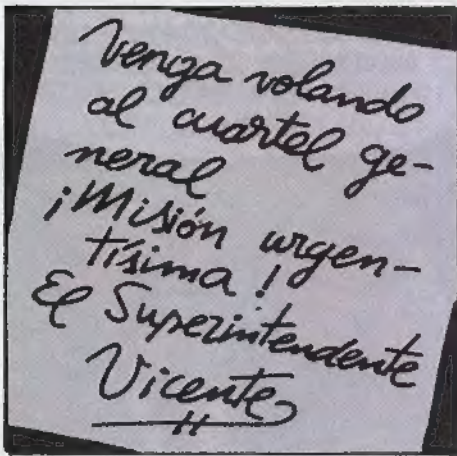 Venga volando
al cuartel ge-
neral
¡Misión urgen-
tísima!
El Superintendente
Vicente